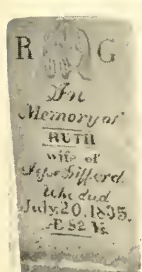 R G
In
Memory of
RUTH
wife of
Gifford
who died
July 20, 1835.
Æ 52 Ys.